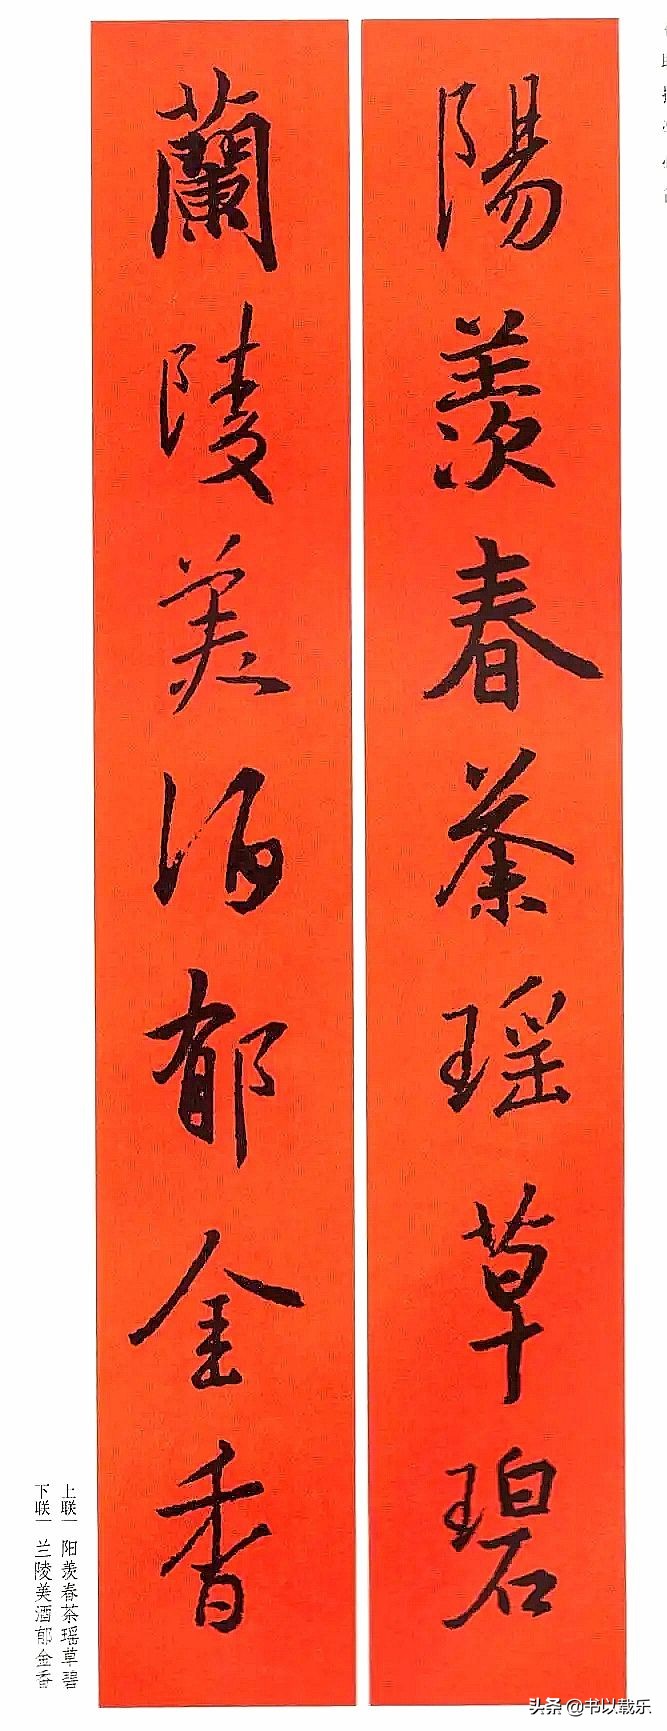 陽羨春茶瑶草碧
蘭陵美酒郁金香
上联｜阳羡春茶瑶草碧
下联｜兰陵美酒郁金香
头条 @书以载乐